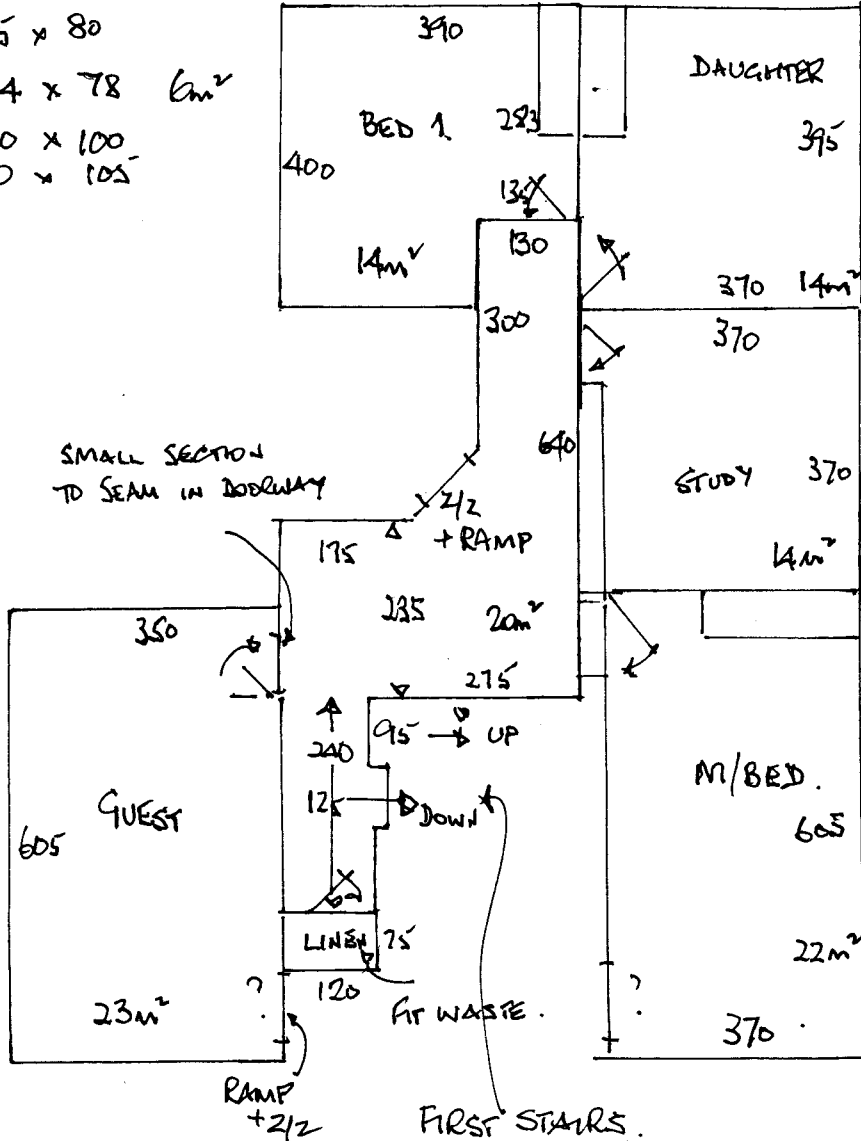 5 x 80
4 x 78 6m²
0 x 100
0 x 105
390
DAUGHTER
BED 1
283
395
400
135
130
14m²
370 14m²
300
370
640
SMALL SECTION
TO SEAM IN DOORWAY
STUDY 370
2/2
+ RAMP
175
14m²
235
20m²
350
275
95 UP
240
M/BED.
GUEST
125
DOWN
605
605
LINEN 75
22m²
120
23m²
?
FIT WASTE.
?
370
RAMP
+2/2
FIRST STAIRS.